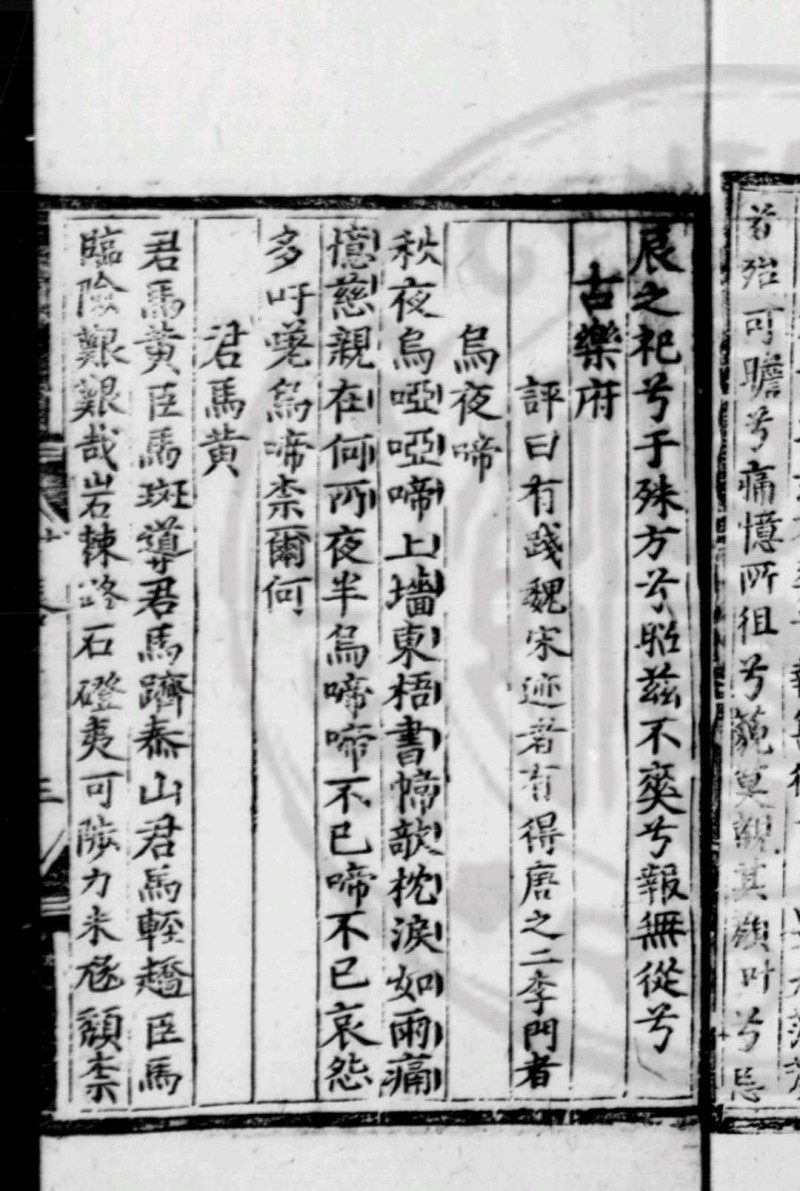 若殆可瞻兮痛憶所徂兮莫覩其叶兮
辰之祀兮于殊方兮昭茲不爽兮報無從兮
古樂府
評曰有踐魏宋迹者有得唐之二李門者
烏夜啼
秋夜烏啞啞啼上墻東梧書幃欹枕淚如雨痛
憶慈親在何所夜半烏啼啼不已啼不已哀怨
多吁嗟烏啼柰爾何
君馬黃
君馬黃臣馬斑導君馬躋泰山君馬輕趫臣馬
臨險艱艱哉岩棘路石磴夷可陟力未𣨼頹柰